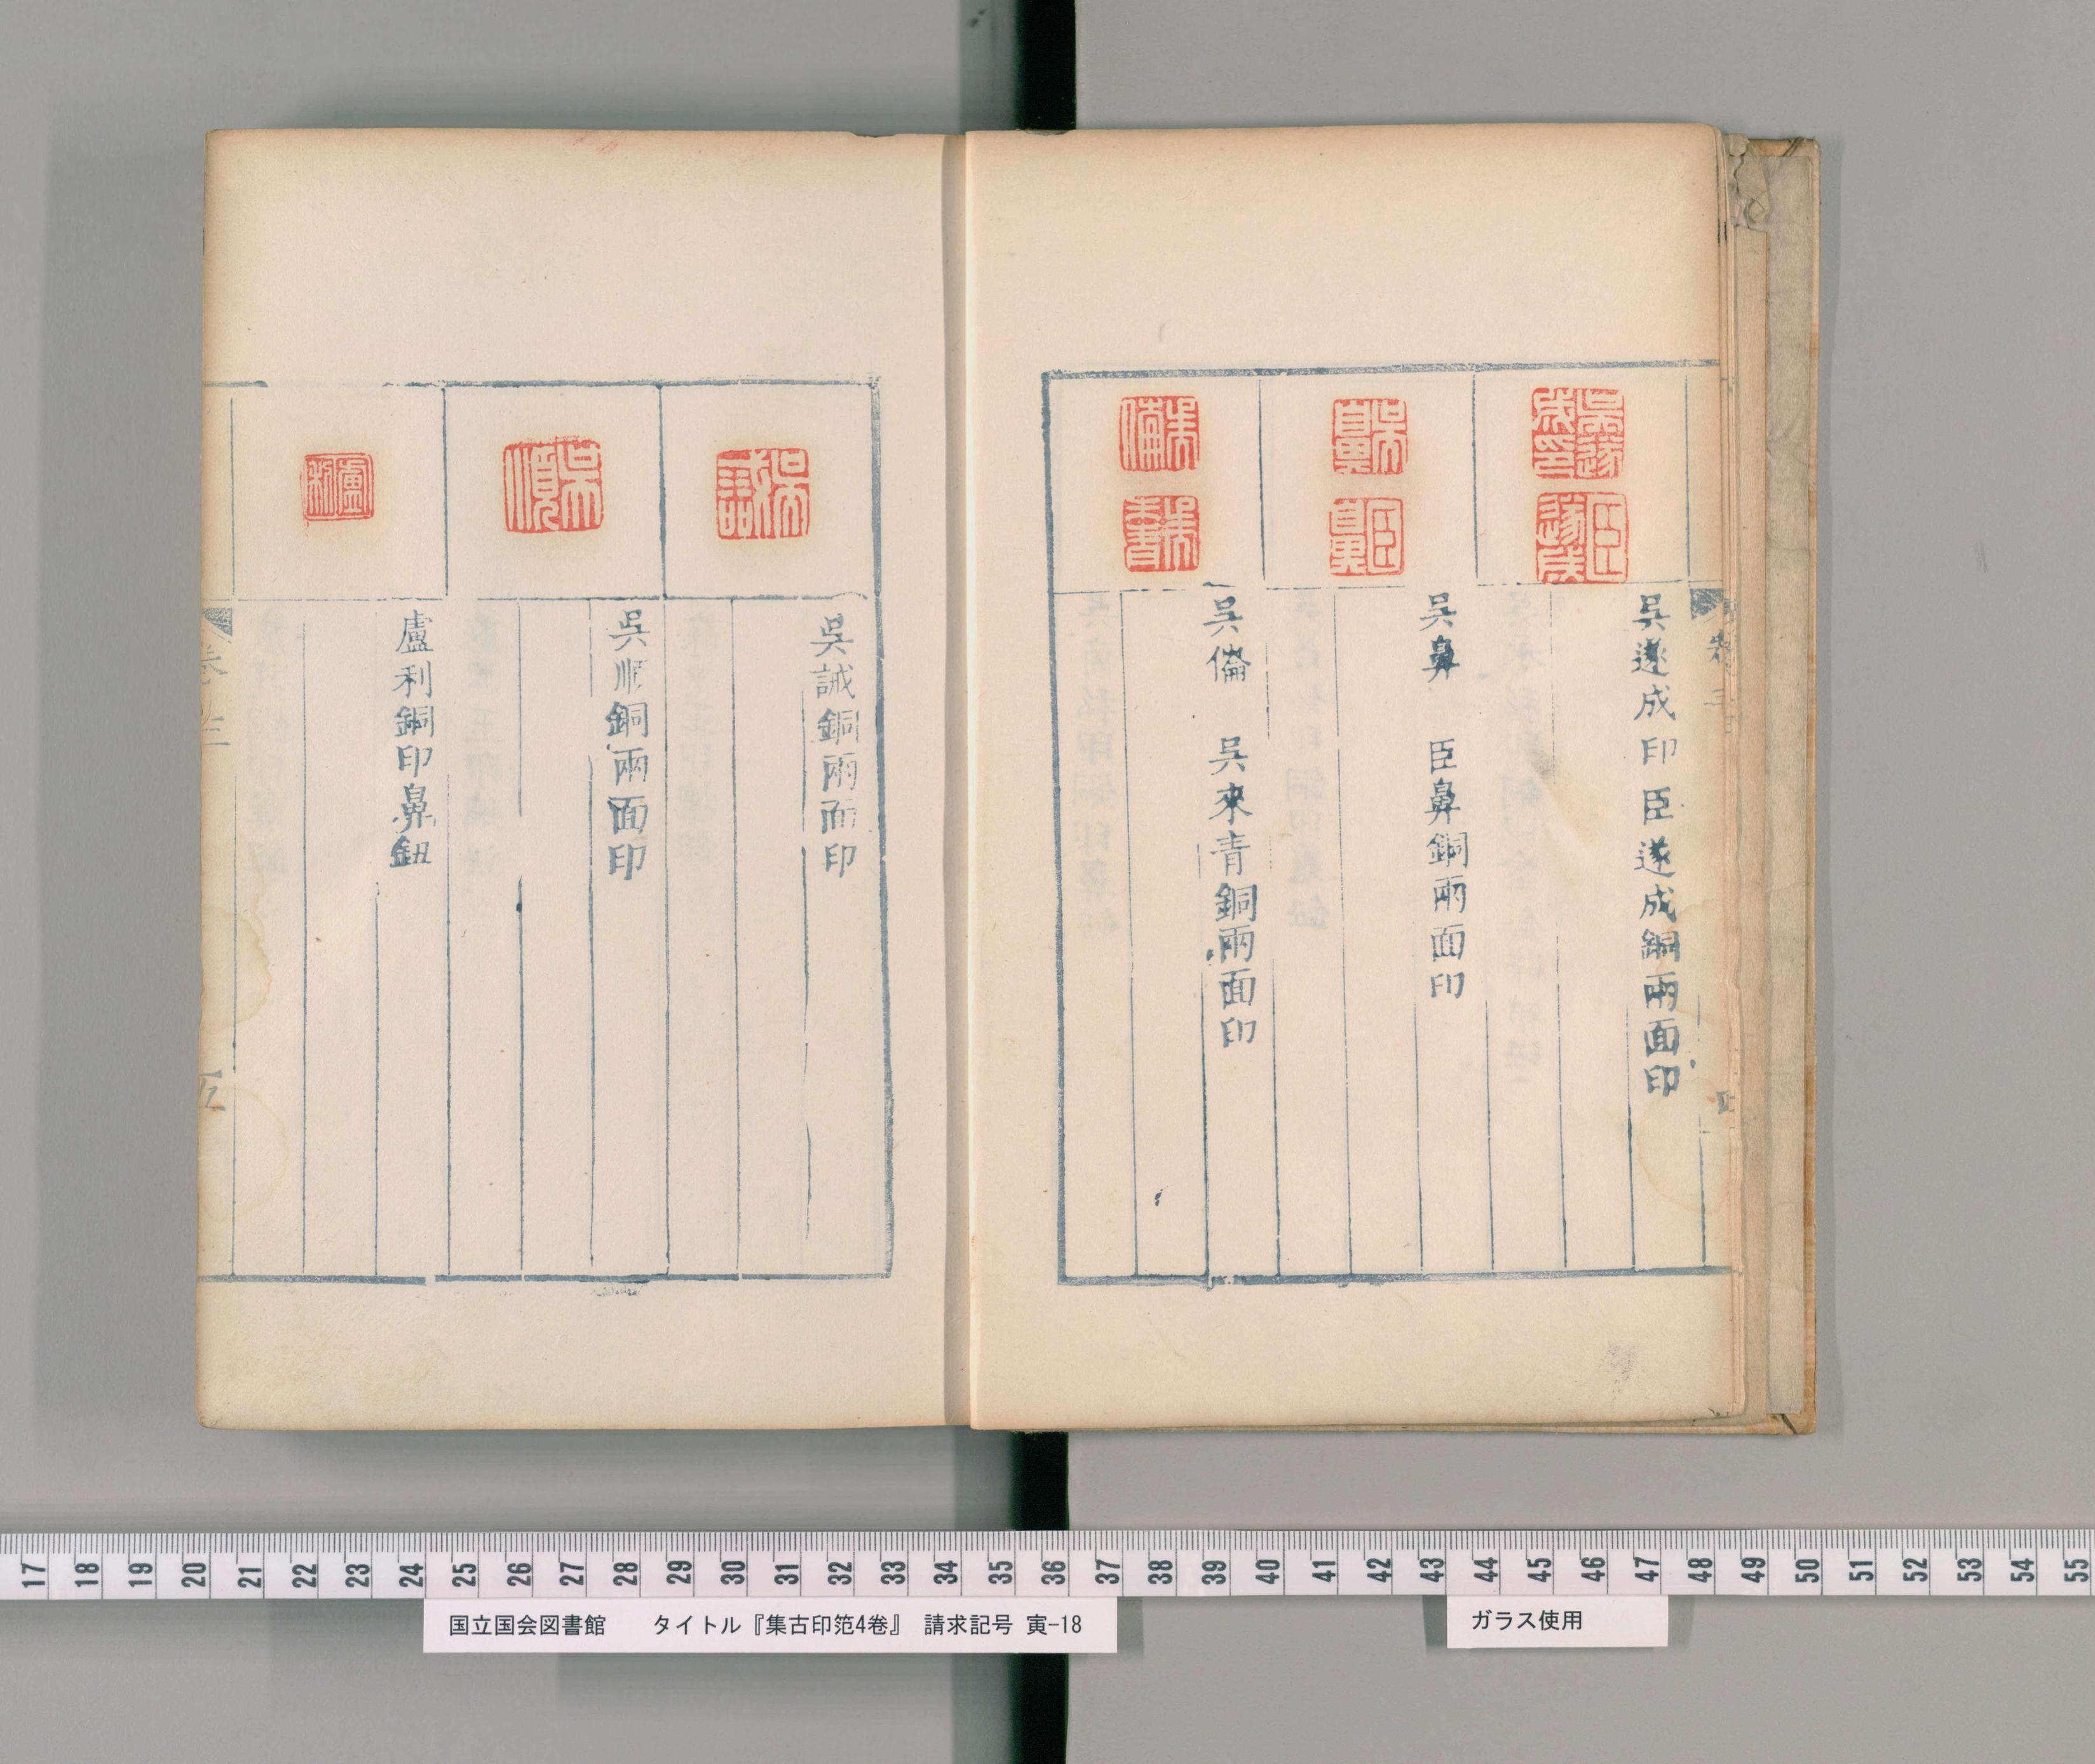 吳遂成印臣遂成銅兩面印
吳鼻 臣鼻銅兩面印
吳倫 吳來青銅兩面印
吳誠銅兩面印
吳順銅兩面印
盧利銅印鼻鈕
卷三
五
17 18 19 20 21 22 23 24 25 26 27 28 29 30 31 32 33 34 35 36 37 38 39 40 41 42 43 44 45 46 47 48 49 50 51 52 53 54 55
国立国会図書館 タイトル『集古印笵4巻』 請求記号 寅-18
ガラス使用